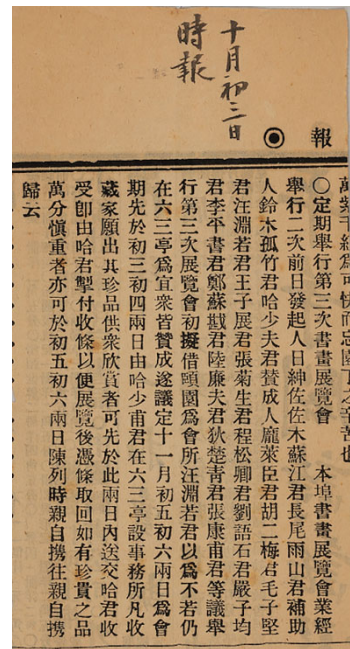 十月初三日
時報
報
萬紫千紅爲可快而忘園丁之辛苦也
〇定期舉行第三次書畫展覽會　本埠書畫展覽會業經
舉行二次前日發起人日紳佐佐木蘇江君長尾雨山君補助
人鈴木孤竹君哈少夫君贊成人龐萊臣君胡二梅君毛子堅
君汪淵若君王子展君張菊生君程松卿君劉語石君嚴子均
君李平書君鄭蘇戡君陸廉夫君狄楚青君張康甫君等議舉
行第三次展覽會初擬借頤園爲會所汪淵若君以爲不若仍
在六三亭爲宜衆皆贊成遂議定十一月初五初六兩日爲會
期先於初三初四兩日由哈少甫君在六三亭設事務所凡收
藏家願出其珍品供衆欣賞者可先於此兩日內送交哈君收
受卽由哈君掣付收條以便展覽後憑條取回如有珍貴之品
萬分愼重者亦可於初五初六兩日陳列時親自携往親自携
歸云